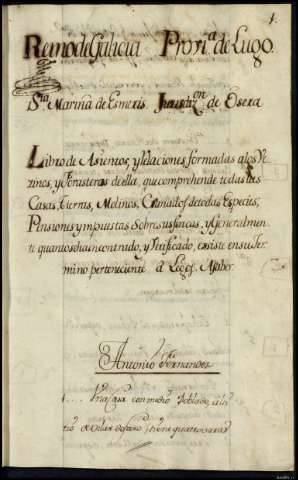 1.
Reino de Galicia Prov.ª de Lugo
S.ta Marina de Esmeris Jurisd.on de Osera
Libro de Asientos, y Relaciones formadas a los Ve
zinos, y Forasteros de ella, que comprehende todas las
Casas, tierras, Molinos, Ganados de todas Especies,
Pensiones ympuestas Sobre sus fincas, y Generalmen
te quanto se ha encontrado, y Verificado, existe en su ter
mino perteneciente a Legos. A saber
Antonio Fernandez
1.... Una Casa con medio Sobrado, al si
tio de tiene quatro varas